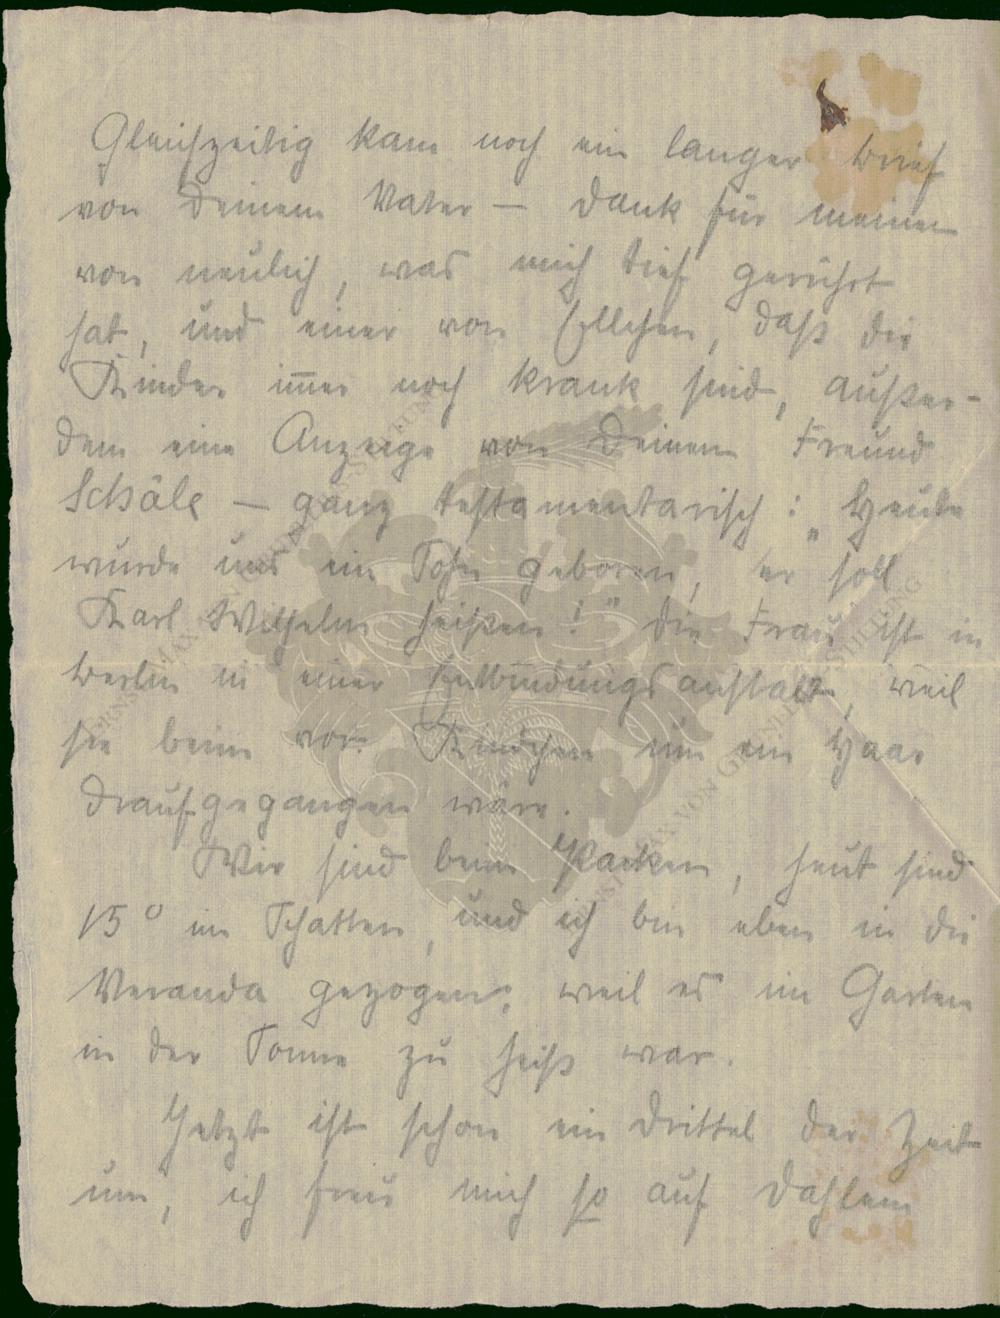 Gleichzeitig kam noch ein langer Brief
von Deinem Vater — Dank für meinen
von neulich, was mich tief gerührt
hat, und einer von Ellchen, daß die
Kinder immer noch krank sind, außer-
dem eine Anzeige von Deinem Freund
Schäle — ganz testamentarisch: „Heute
wurde uns ein Sohn geboren, er soll
Karl Wilhelm heißen!" Die Frau ist in
Berlin in einer Entbindungsanstalt, weil
sie beim vor. Kindchen um ein Haar
draufgegangen wäre.
Wir sind beim Packen, heut sind
15° im Schatten, und ich bin eben in die
Veranda gezogen, weil es im Garten
in der Sonne zu heiß war.
Jetzt ist schon ein Drittel der Zeit
um, ich freu mich so auf Dahlem